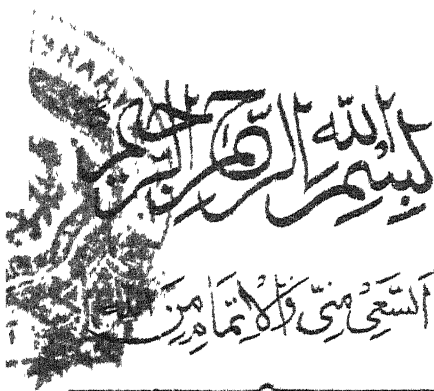 بِسْمِ اللّٰهِ الرَّحْمٰنِ الرَّحِيْمِ
اَلسَّعْیُ مِنِّیْ وَالْاِتْمَامُ مِنَ اللّٰهِ